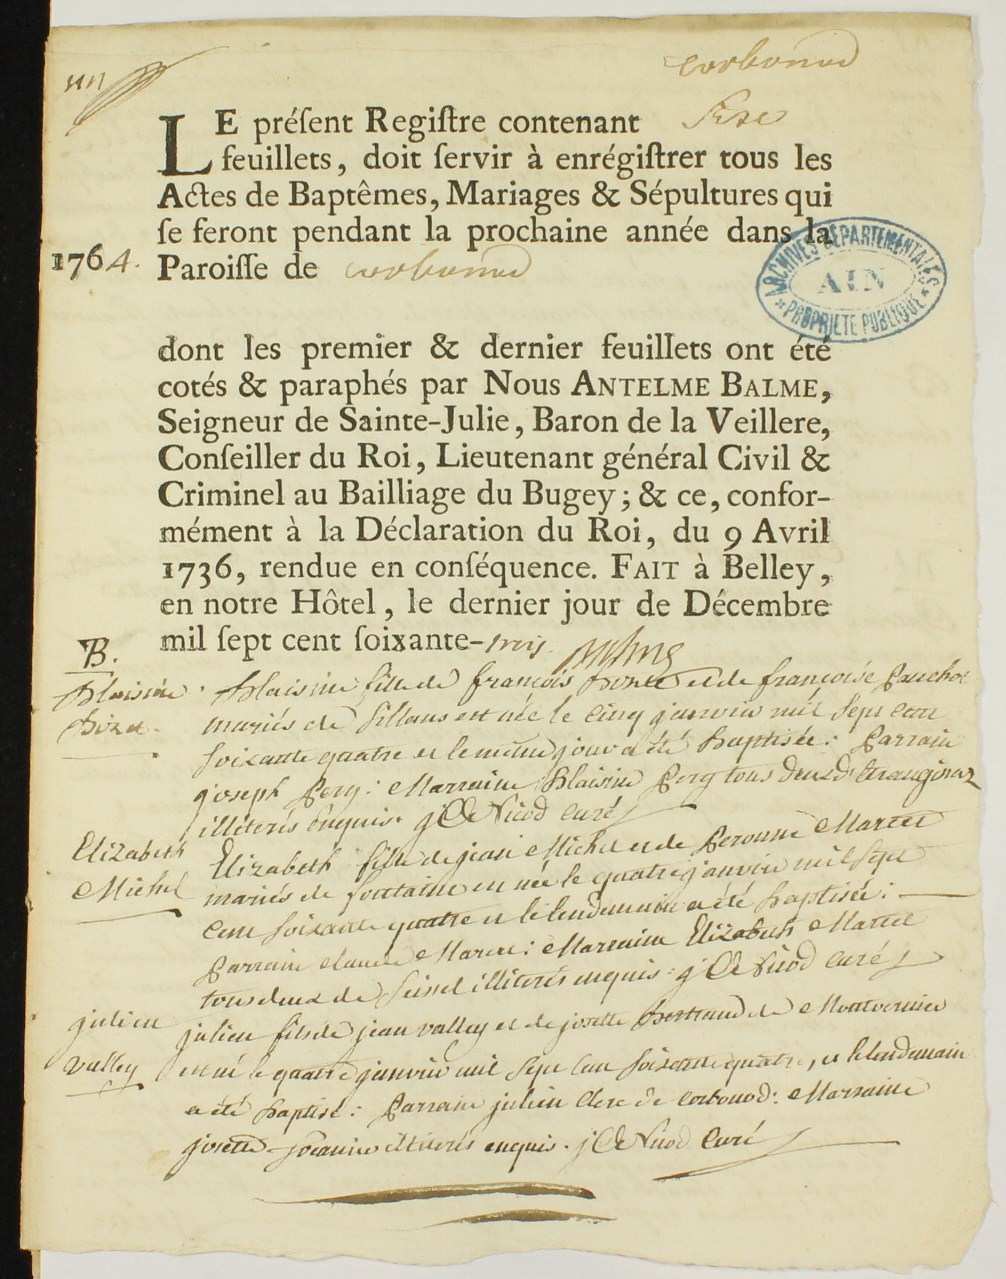 corbonod
LE préſent Regiſtre contenant seize
feuillets, doit ſervir à enrégiſtrer tous les
Actes de Baptêmes, Mariages & Sépultures qui
ſe feront pendant la prochaine année dans la
1764. Paroiſſe de corbonod
ARCHIVES DÉPARTEMENTALES
AIN
* PROPRIÉTÉ PUBLIQUE *
dont les premier & dernier feuillets ont été
cotés & paraphés par Nous ANTELME BALME,
Seigneur de Sainte-Julie, Baron de la Veillere,
Conſeiller du Roi, Lieutenant général Civil &
Criminel au Bailliage du Bugey; & ce, confor-
mément à la Déclaration du Roi, du 9 Avril
1736, rendue en conſéquence. FAIT à Belley,
en notre Hôtel, le dernier jour de Décembre
mil ſept cent ſoixante-trois
B.
Blaisine
Bizet.
Blaisine fille de françois Bizet et de françoise
mariés de Sillans est née le cinq janvier mil sept cent
soixante quatre et le meme jour a été baptisée: Parrain
joseph Pery: Marraine Blaisine Pery tous deux
illiterés enquis. j C De Nicod curé
Elizabeth
Michel
Elizabeth fille de jean Michel et de Peronne Martel
mariés de fontaine en née le quatre janvier mil sept
cent soixante quatre et le lendemain a été baptisée:
Parrain claude Martel: Marraine Elizabeth Martel
tous deux de Seissel illiterés enquis. j C De Nicod curé
julien
valley
julien fils de jean valley et de josette Bertrand de Montvernier
est né le quatre janvier mil sept cent soixante quatre, et le lendemain
a été baptisé: Parrain julien Clerc de Corbonod: Marraine
josette illiterés enquis. j C De Nicod Curé